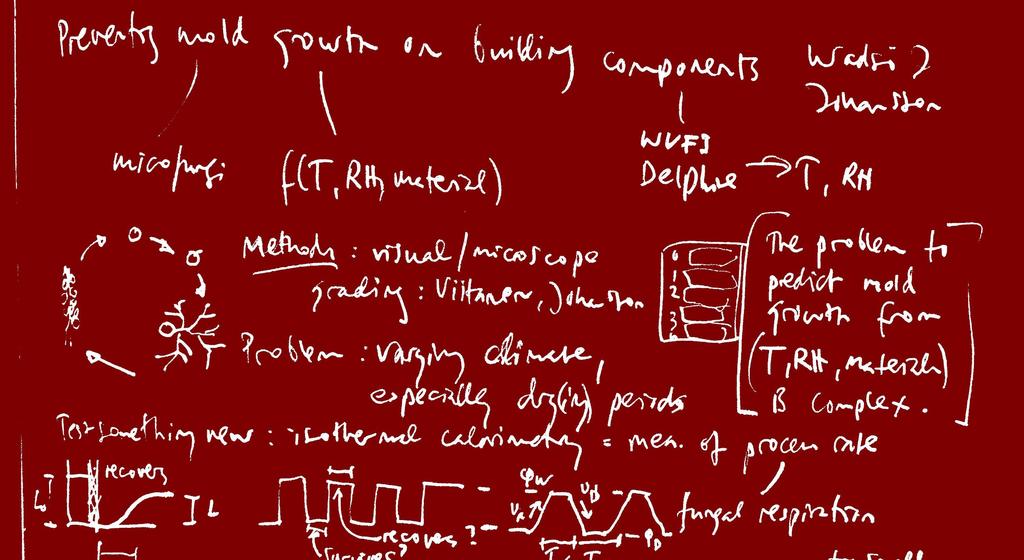 Preventing mold growth on building components
Wadsö
Johansson
microfungi
f(T, RH, material)
WUFI
Delphin → T, RH
Methods: visual/microscope
grading: Viitanen, Johansson
0
1
2
3
[The problem to
predict mold
growth from
(T, RH, material)
is complex.]
Problem: varying climate,
especially dry(ing) periods
Test something new: isothermal calorimetry = meas. of process rate
fungal respiration
recovers
L
recovers?
survives?
φw
φD
T
T